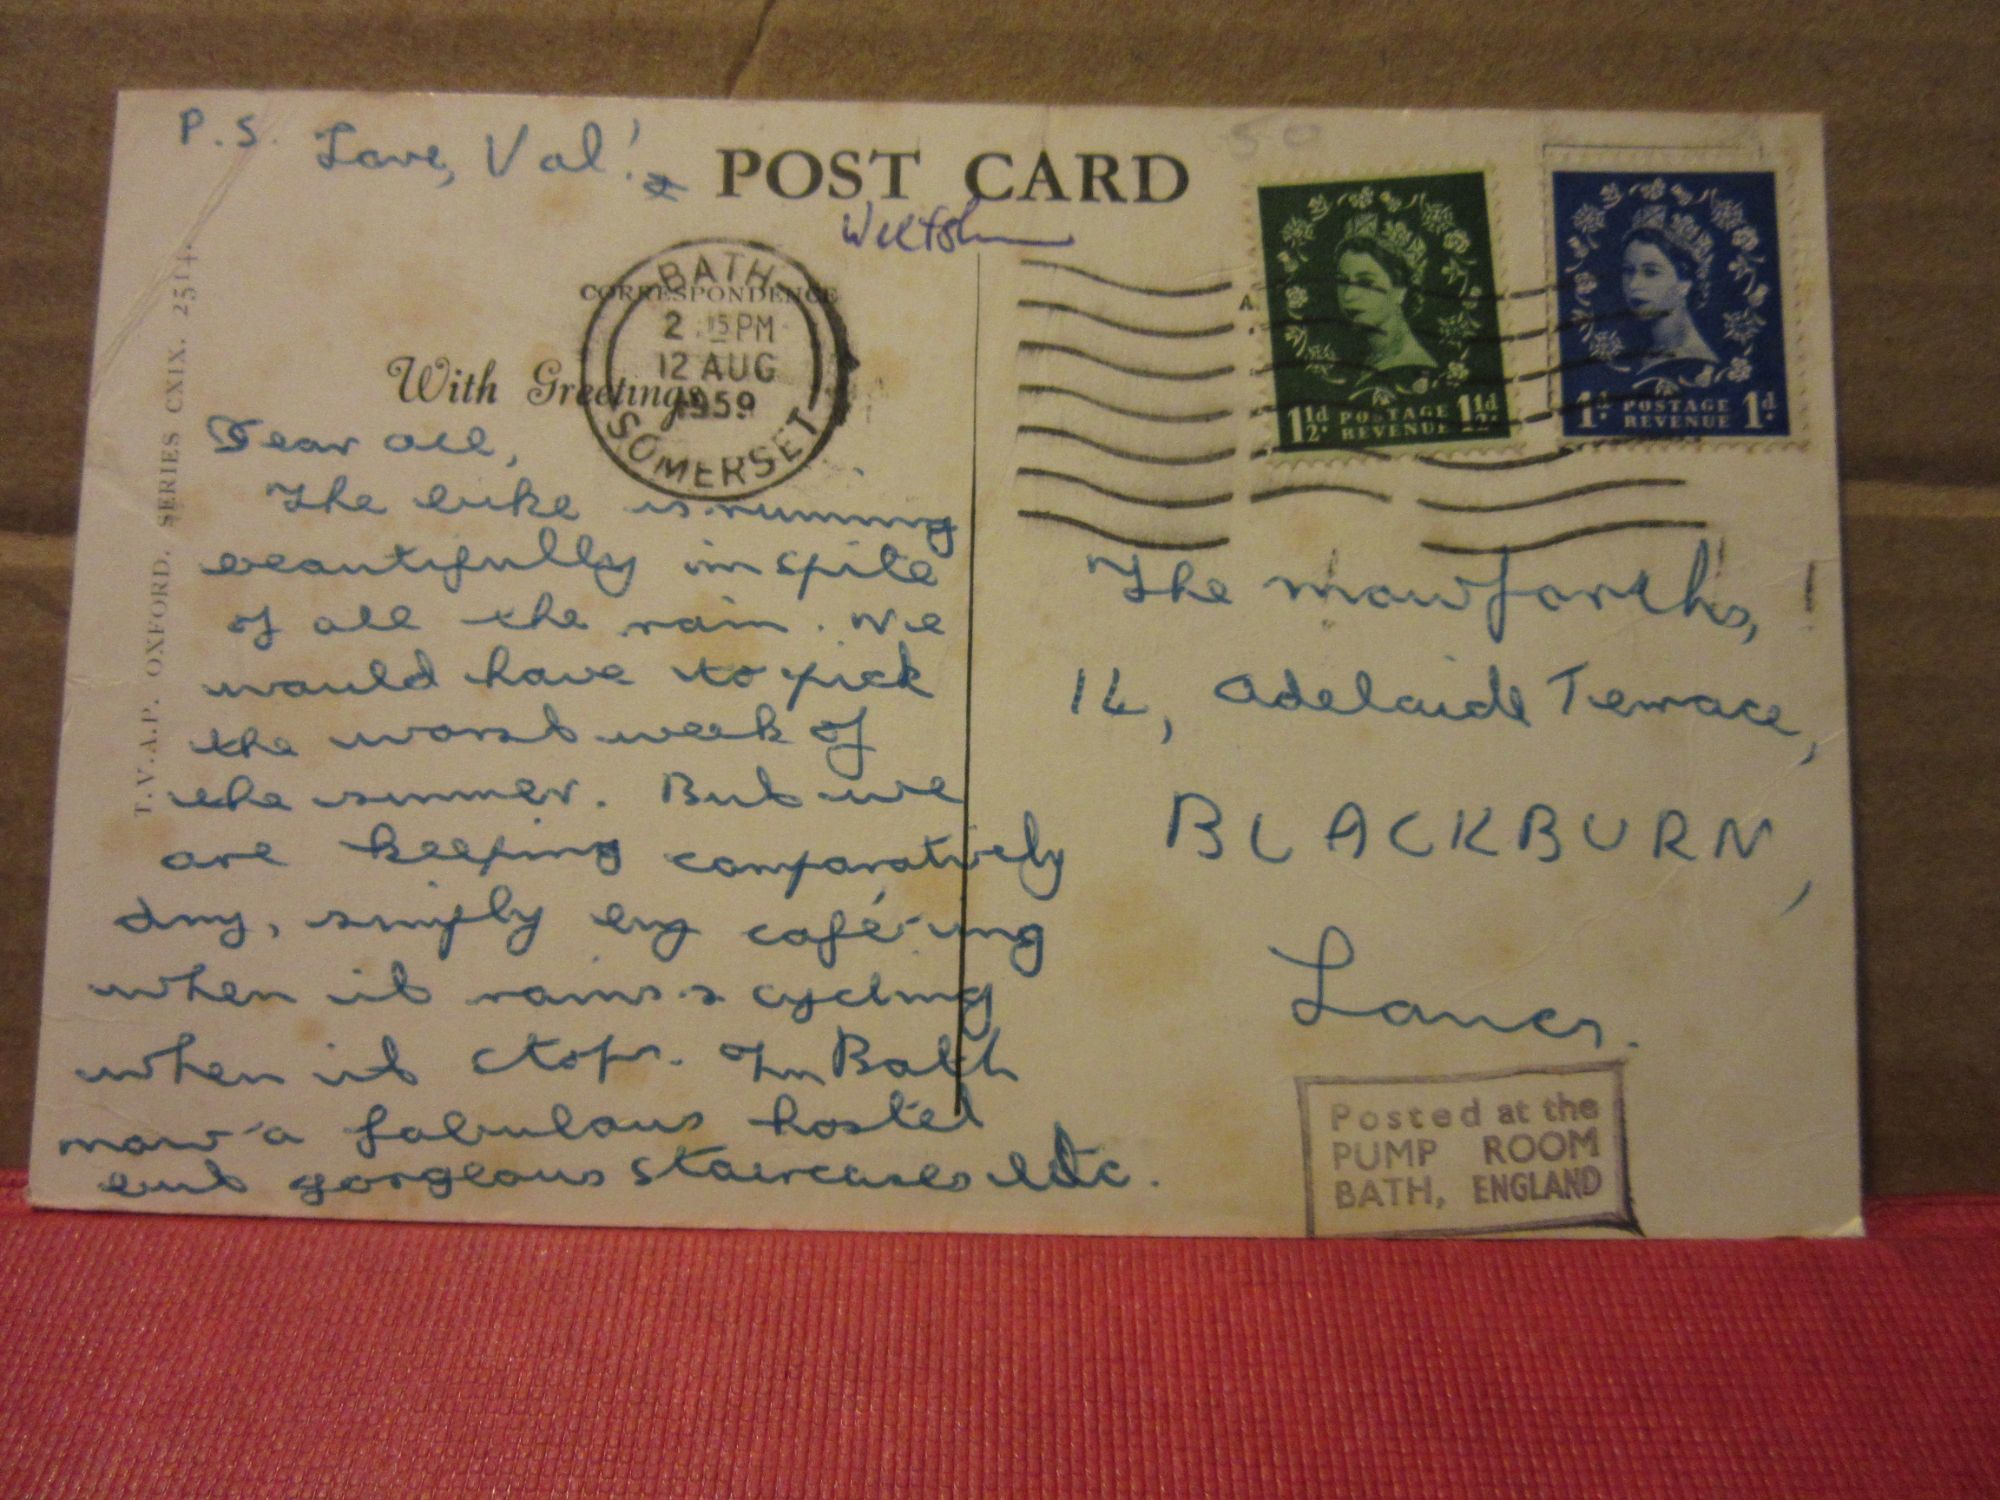 P.S. Love, Val!
POST CARD
Wiltsh
CORRESPONDENCE
With Greetings
BATH
2 15 PM
12 AUG
1959
SOMERSET
Dear all,
The bike is running
beautifully in spite
of all the rain. We
would have to pick
the worst week of
the summer. But we
are keeping comparatively
dry, simply by café-ing
when it rains & cycling
when it stops. In Bath
now - a fabulous hostel
but gorgeous staircases etc.
T.V.A.P. OXFORD. SERIES CXIX. 2514.
50
1½d. POSTAGE REVENUE 1½d.
1d. POSTAGE REVENUE 1d.
The Mawforths,
14, Adelaide Terrace,
BLACKBURN,
Lancs.
Posted at the
PUMP ROOM
BATH, ENGLAND